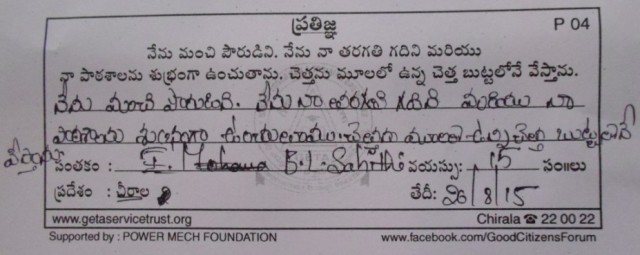 ప్రతిజ్ఞ P 04
నేను మంచి పౌరుడిని. నేను నా తరగతి గదిని మరియు
నా పాఠశాలను శుభ్రంగా ఉంచుతాను. చెత్తను మూలలో ఉన్న చెత్త బుట్టలోనే వేస్తాను.
నేను మంచి పౌరుడిని. నేను నా తరగతి గదిని మరియు నా
పాఠశాలను శుభ్రంగా ఉంచుతాను. చెత్తను మూలలో ఉన్న చెత్త బుట్టలోనే
వేస్తాను
సంతకం : B.L. వయస్సు: 15 సం॥లు
ప్రదేశం : చీరాల తేదీ: 26/8/15
www.getaservicetrust.org Chirala ☎ 22 00 22
Supported by : POWER MECH FOUNDATION www.facebook.com/GoodCitizensForum